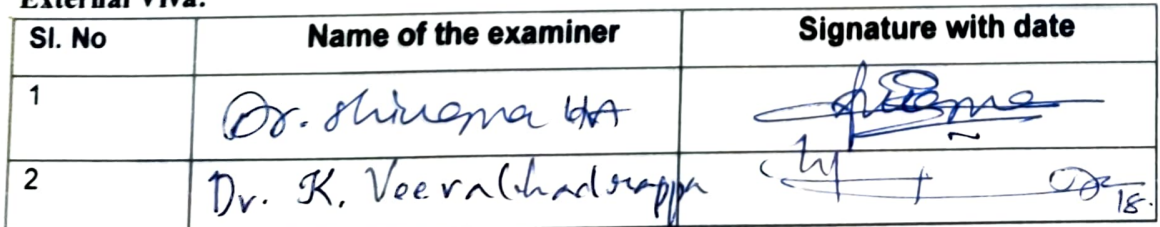 External Viva:
Sl. No Name of the examiner Signature with date
1 Dr. Shivama HA
2 Dr. K. Veerabhadrappa
18.